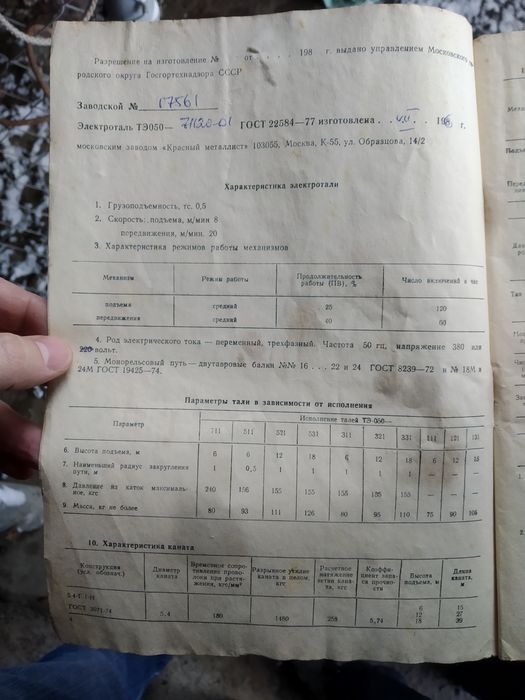 Разрешение на изготовление № от . . . . . 198 г. выдано управлением Московского
родского округа Госгортехнадзора СССР
Заводской № 17561
Электроталь ТЭ050— 71120-01 ГОСТ 22584—77 изготовлена . . VII . . 198 г.
московским заводом «Красный металлист» 103055, Москва, К-55, ул. Образцова, 14/2
Характеристика электротали
1. Грузоподъемность, тс. 0,5
2. Скорость: подъема, м/мин 8
передвижения, м/мин. 20
3. Характеристика режимов работы механизмов
Механизм Режим работы Продолжительность работы (ПВ), % Число включений в час
подъема средний 25 120
передвижения средний 40 60
4. Род электрического тока — переменный, трехфазный. Частота 50 гц, напряжение 380 или
220 вольт.
5. Монорельсовый путь—двутавровые балки №№ 16 . . . 22 и 24 ГОСТ 8239—72 и № 18М и
24М ГОСТ 19425—74.
Параметры тали в зависимости от исполнения
Параметр Исполнение талей ТЭ-050—
711 511 521 531 311 321 331 111 121 131
6. Высота подъема, м 6 6 12 18 6 12 18 6 12 18
7. Наименьший радиус закругления
пути, м 1 0,5 1 1 1 1 1 — —
8. Давление на каток максималь-
ное, кгс 240 156 155 155 155 155 155 — —
9. Масса, кг не более 80 93 111 126 80 95 110 75 90 105
10. Характеристика каната
Конструкция (усл. обознач.) Диаметр каната Временное сопротивление проволоки при растяжении, кгс/мм² Разрывное усилие каната в целом, кгс Расчетное натяжение ветви каната, кгс Коэффициент запаса прочности Высота подъема, м Длина каната, м
ГОСТ 3071-74 5.4 180 1480 258 5,74
6 15
12 27
18 39
4